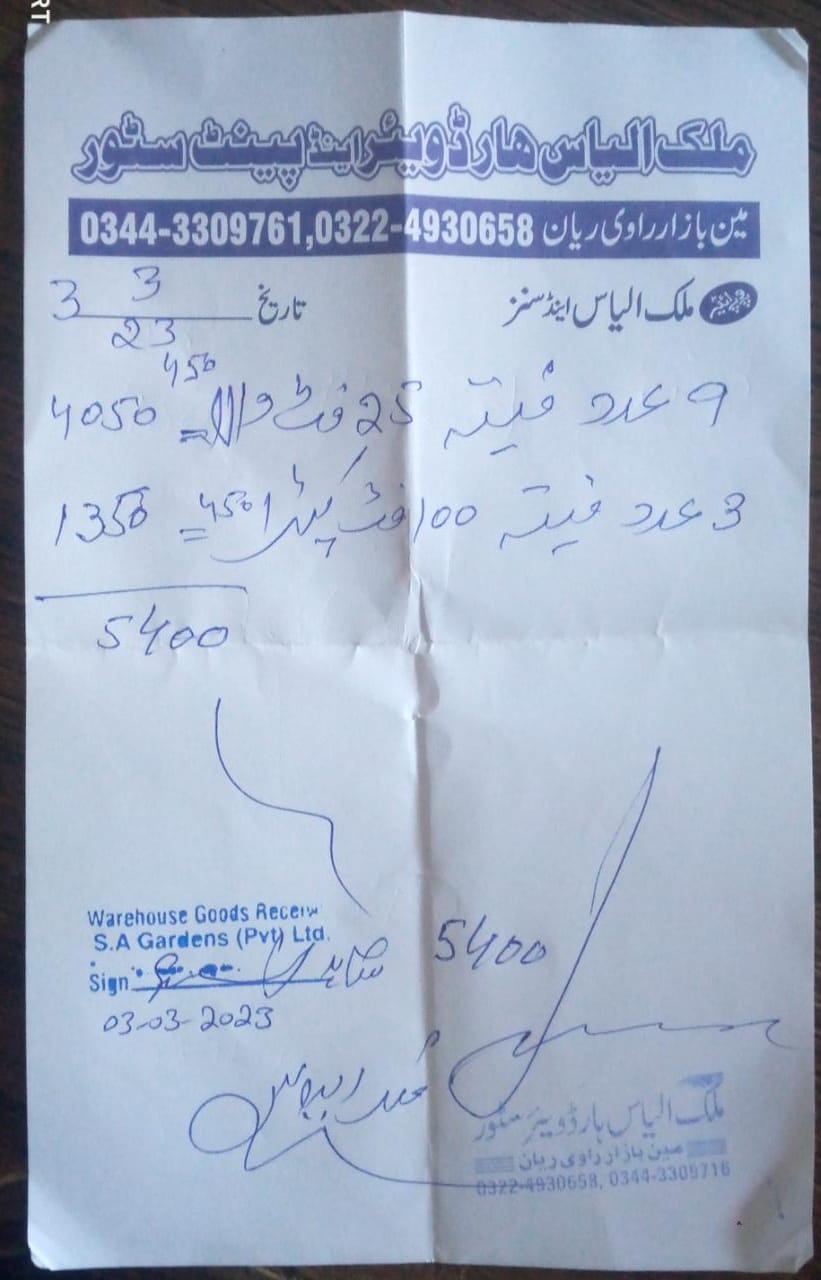 RT
ملک الیاس ھارڈویئر اینڈ پینٹ سٹور
مین بازار راوی ریان 0344-3309761,0322-4930658
پروپرائیٹر ملک الیاس اینڈ سنز
تاریخ 3 3 23
9 عدد فیتہ 25 فٹ والا 450 = 4050
3 عدد فیتہ 100 فٹ کپڑا 450 = 1350
5400
Warehouse Goods Receiv
S.A Gardens (Pvt) Ltd.
Sign
03-03-2023
5400
محمد
ملک الیاس ہارڈویئر سٹور
مین بازار راوی ریان
0322-4930658, 0344-3309716